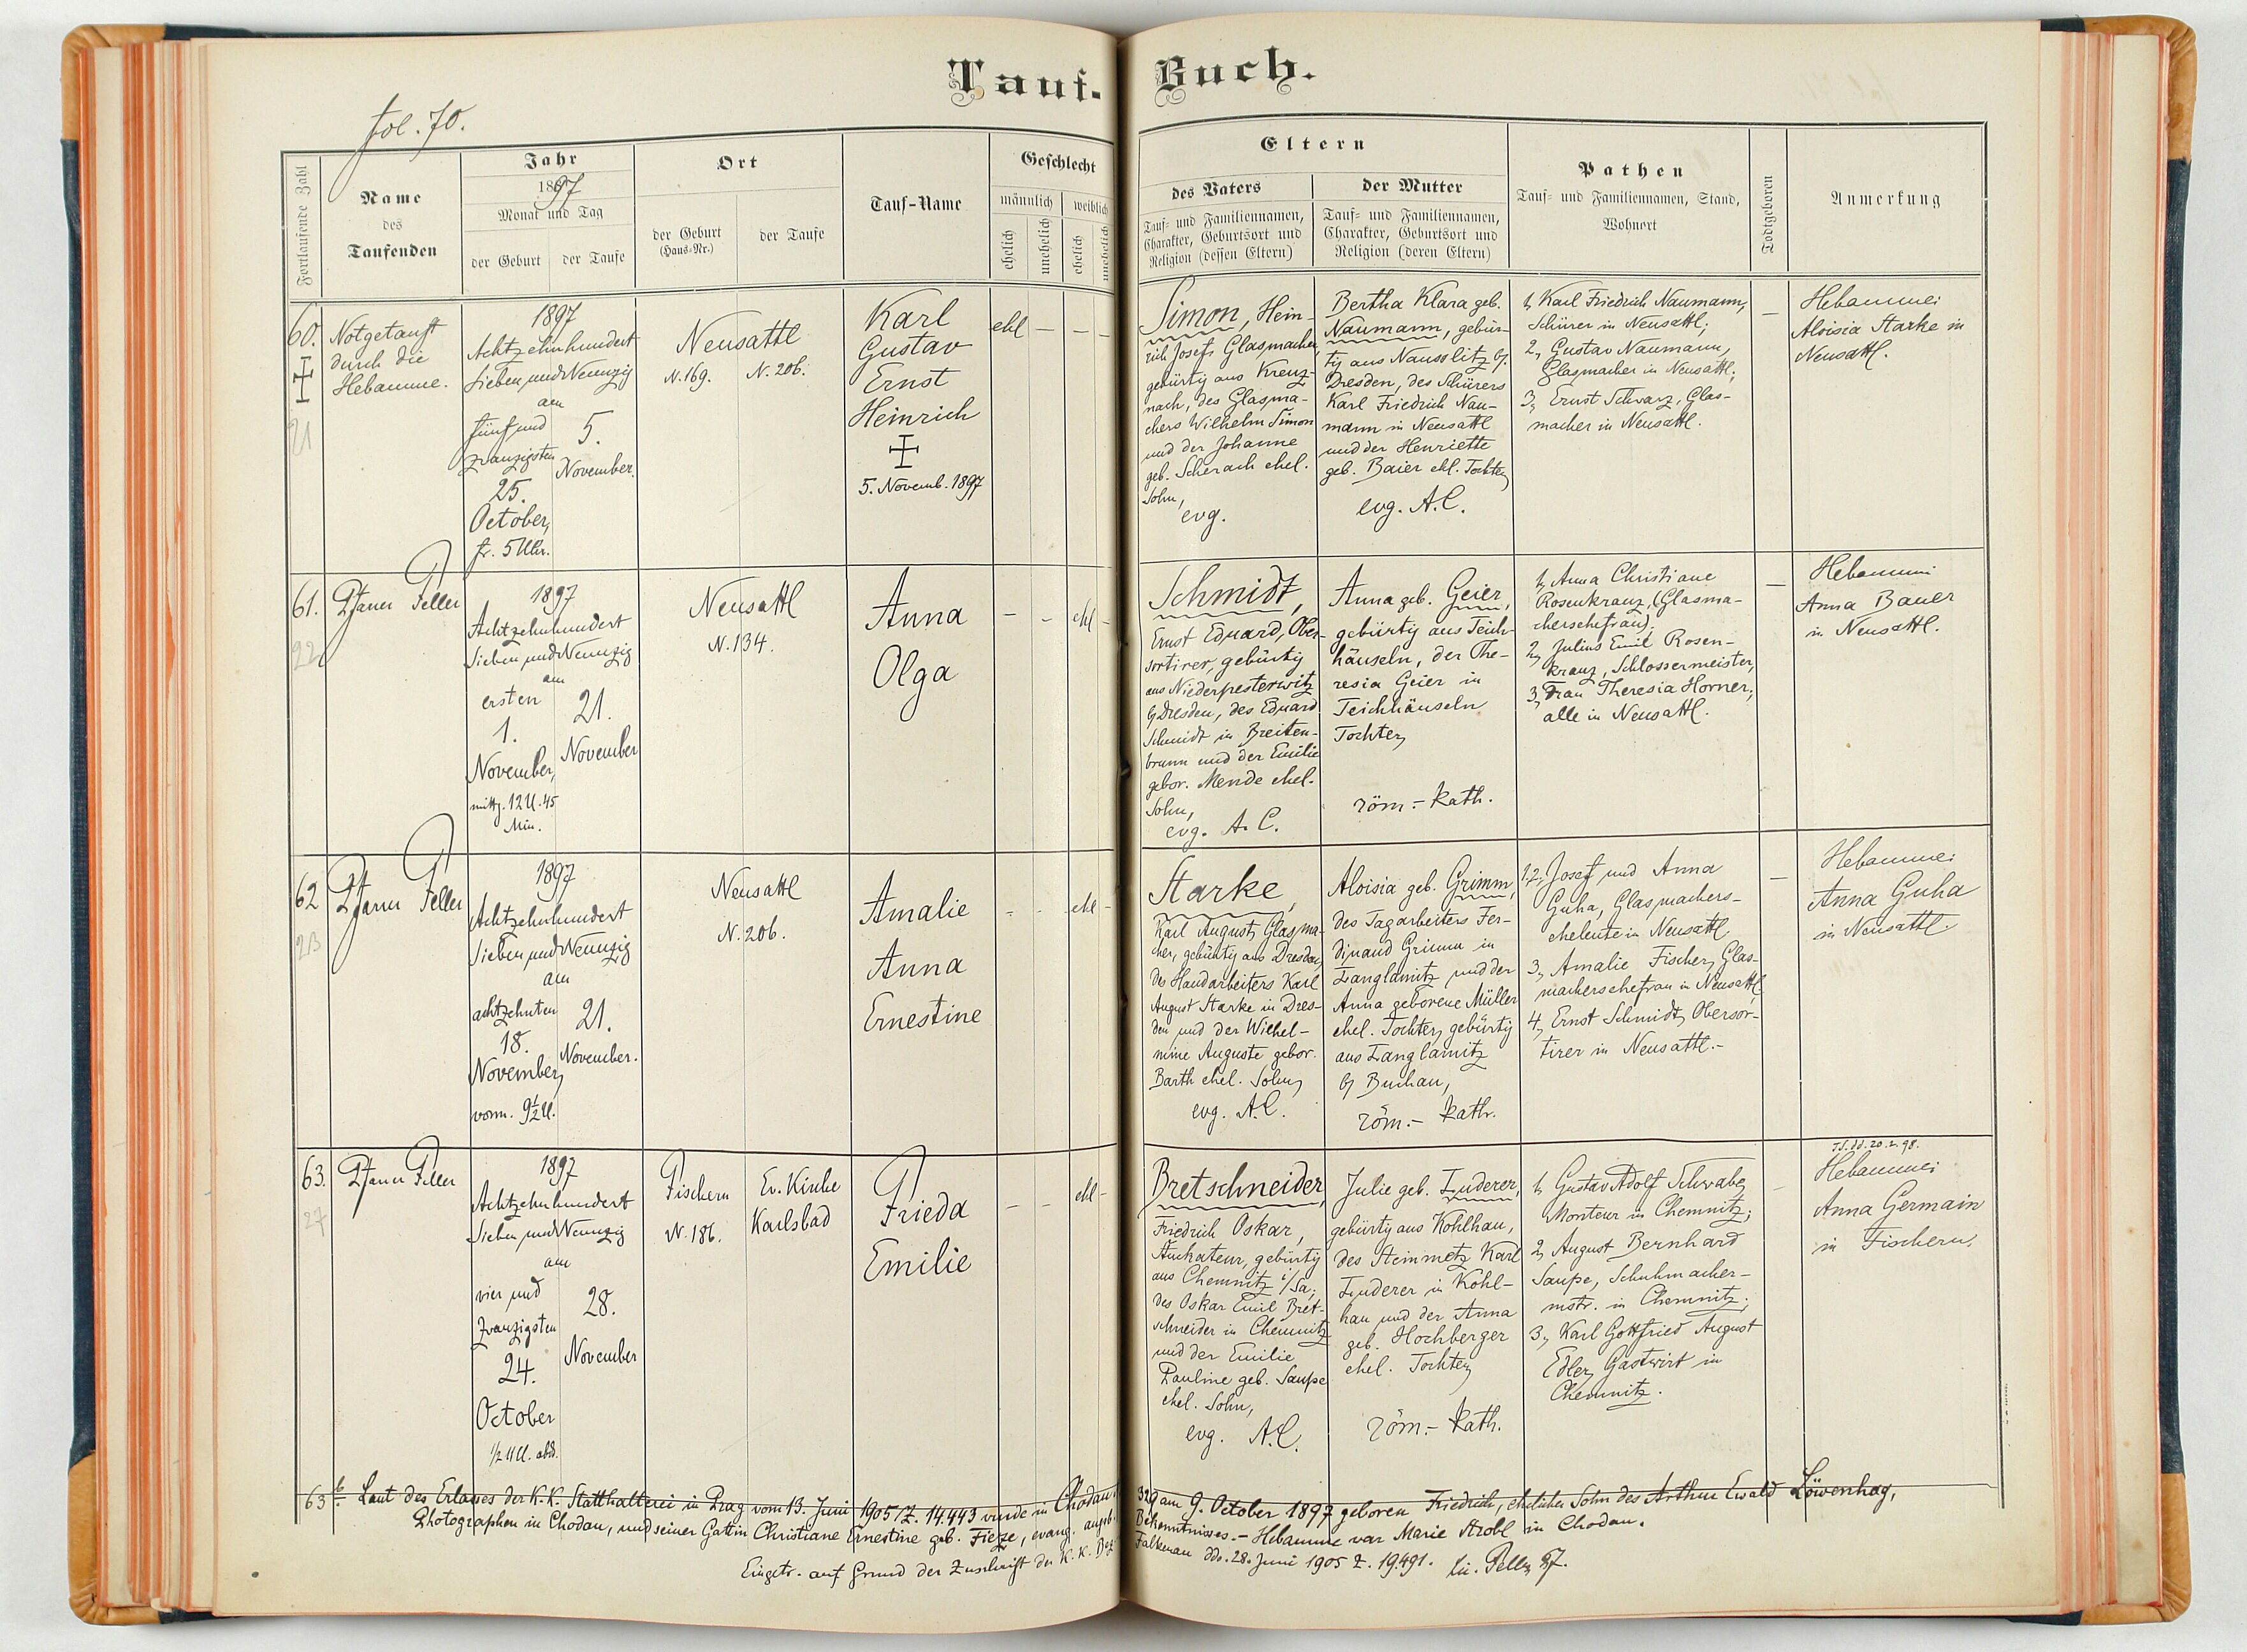 Tauf-Buch.
fol. 70.
Fortlaufende Zahl
Name
des
Taufenden
Jahr
1897
Monat und Tag
der Geburt
der Taufe
Ort
der Geburt
(Haus-Nr.)
der Taufe
Tauf-Name
Geschlecht
männlich
weiblich
ehelich
unehelich
ehelich
unehelich
Eltern
des Vaters
Tauf- und Familiennamen,
Charakter, Geburtsort und
Religion (dessen Eltern)
der Mutter
Tauf- und Familiennamen,
Charakter, Geburtsort und
Religion (deren Eltern)
Pathen
Tauf- und Familiennamen, Stand,
Wohnort
Todtgeboren
Anmerkung
60.
21
Notgetauft
durch die
Hebamme.
1897
Achtzehnhundert
Sieben und Neunzig
am
fünf und
zwanzigsten
25.
October,
fr. 5 Uhr.
5.
November.
Neusattl
N. 169.
N. 206.
Karl
Gustav
Ernst
Heinrich
5. Novemb. 1897
ehl — — —
Simon, Hein-
rich Josef, Glasmacher,
gebürtig aus Kreuz-
nach, des Glasma-
chers Wilhelm Simon
und der Johanne
geb. Scherach ehel.
Sohn,
evg.
Bertha Klara geb.
Naumann, gebür-
tig aus Nausslitz b/
Dresden, des Schürers
Karl Friedrich Nau-
mann in Neusattl
und der Henriette
geb. Baier ehl. Tochter,
evg. A.C.
1, Karl Friedrich Naumann,
Schürer in Neusattl;
2, Gustav Naumann,
Glasmacher in Neusattl;
3, Ernst Schwarz, Glas-
macher in Neusattl.
—
Hebamme:
Aloisia Starke in
Neusattl.
61.
22
Pfarrer Feller
1897
Achtzehnhundert
Sieben und Neunzig
am
ersten
1.
November,
mittg. 12 U. 45
Min.
21.
November
Neusattl
N. 134.
Anna
Olga
— - ehl -
Schmidt,
Ernst Eduard, Ober-
sortirer, gebürtig
aus Niederpesterwitz
b/ Dresden, des Eduard
Schmidt in Breiten-
brunn und der Emilie
gebor. Mende ehel.
Sohn,
evg. A. C.
Anna geb. Geier,
gebürtig aus Teich-
häuseln, der The-
resia Geier in
Teichhäuseln
Tochter,
röm.- kath.
1, Anna Christiane
Rosenkranz, (Glasma-
chersehefrau).
2, Julius Emil Rosen-
kranz, Schlossermeister,
3, Frau Theresia Horner;
alle in Neusattl.
—
Hebamme
Anna Bauer
in Neusattl.
62
23
Pfarrer Feller
1897
Achtzehnhundert
Sieben und Neunzig
am
achtzehnten
18.
November,
vorm. 9½ U.
21.
November.
Neusattl
N. 206.
Amalie
Anna
Ernestine
- - ehl -
Starke,
Karl August, Glasma-
cher, gebürtig aus Dresden,
des Handarbeiters Karl
August Starke in Dres-
den und der Wilhel-
mine Auguste gebor.
Barth ehel. Sohn,
evg. A.C.
Aloisia geb. Grimm,
des Tagarbeiters Fer-
dinand Grimm in
Langlamitz und der
Anna geborene Müller
ehel. Tochter, gebürtig
aus Langlamitz
b/ Buchau,
röm.- kath.
1,2, Josef und Anna
Guha, Glasmachers-
eheleute in Neusattl
3, Amalie Fischer, Glas-
machersehefrau in Neusattl,
4, Ernst Schmidt, Obersor-
tirer in Neusattl.-
—
Hebamme:
Anna Guha
in Neusattl.
63.
27
Pfarrer Feller
1897
Achtzehnhundert
Sieben und Neunzig
am
vier und
zwanzigsten
24.
October
½ 11 U. abd.
28.
November
Fischern
N. 186.
Ev. Kirche
Karlsbad
Frieda
Emilie
— — ehl -
Bretschneider,
Friedrich Oskar,
Stuckateur, gebürtig
aus Chemnitz i/Sa;
des Oskar Emil Bret-
schneider in Chemnitz
und der Emilie
Pauline geb. Saupe
ehel. Sohn,
evg. A.C.
Julie geb. Luderer,
gebürtig aus Kohlhau,
des Steinmetz Karl
Luderer in Kohl-
hau und der Anna
geb. Hochberger
ehel. Tochter,
röm.- kath.
1, Gustav Adolf Schwabe,
Monteur in Chemnitz;
2, August Bernhard
Saupe, Schuhmacher-
mstr. in Chemnitz;
3, Karl Gottfried August
Edler, Gastwirt in
Chemnitz.
T.S. dd. 20. 2. 98.
Hebamme:
Anna Germain
in Fischern.
63 b. Laut des Erlasses der K.K. Statthalterei in Prag vom 13. Juni 1905/Z. 14.443 wurde in Chodau 329 am 9. October 1897 geboren Friedrich, ehelicher Sohn des Arthur Ewald Löwenhag,
Photographen in Chodau, und seiner Gattin Christiane Ernestine geb. Fieze, evang. augsb. Bekenntnisses. - Hebamme war Marie Strobl in Chodau.
Eingetr. auf Grund der Zuschrift der K. K. Bez. Falkenau ddo. 28. Juni 1905 Z. 19.491.